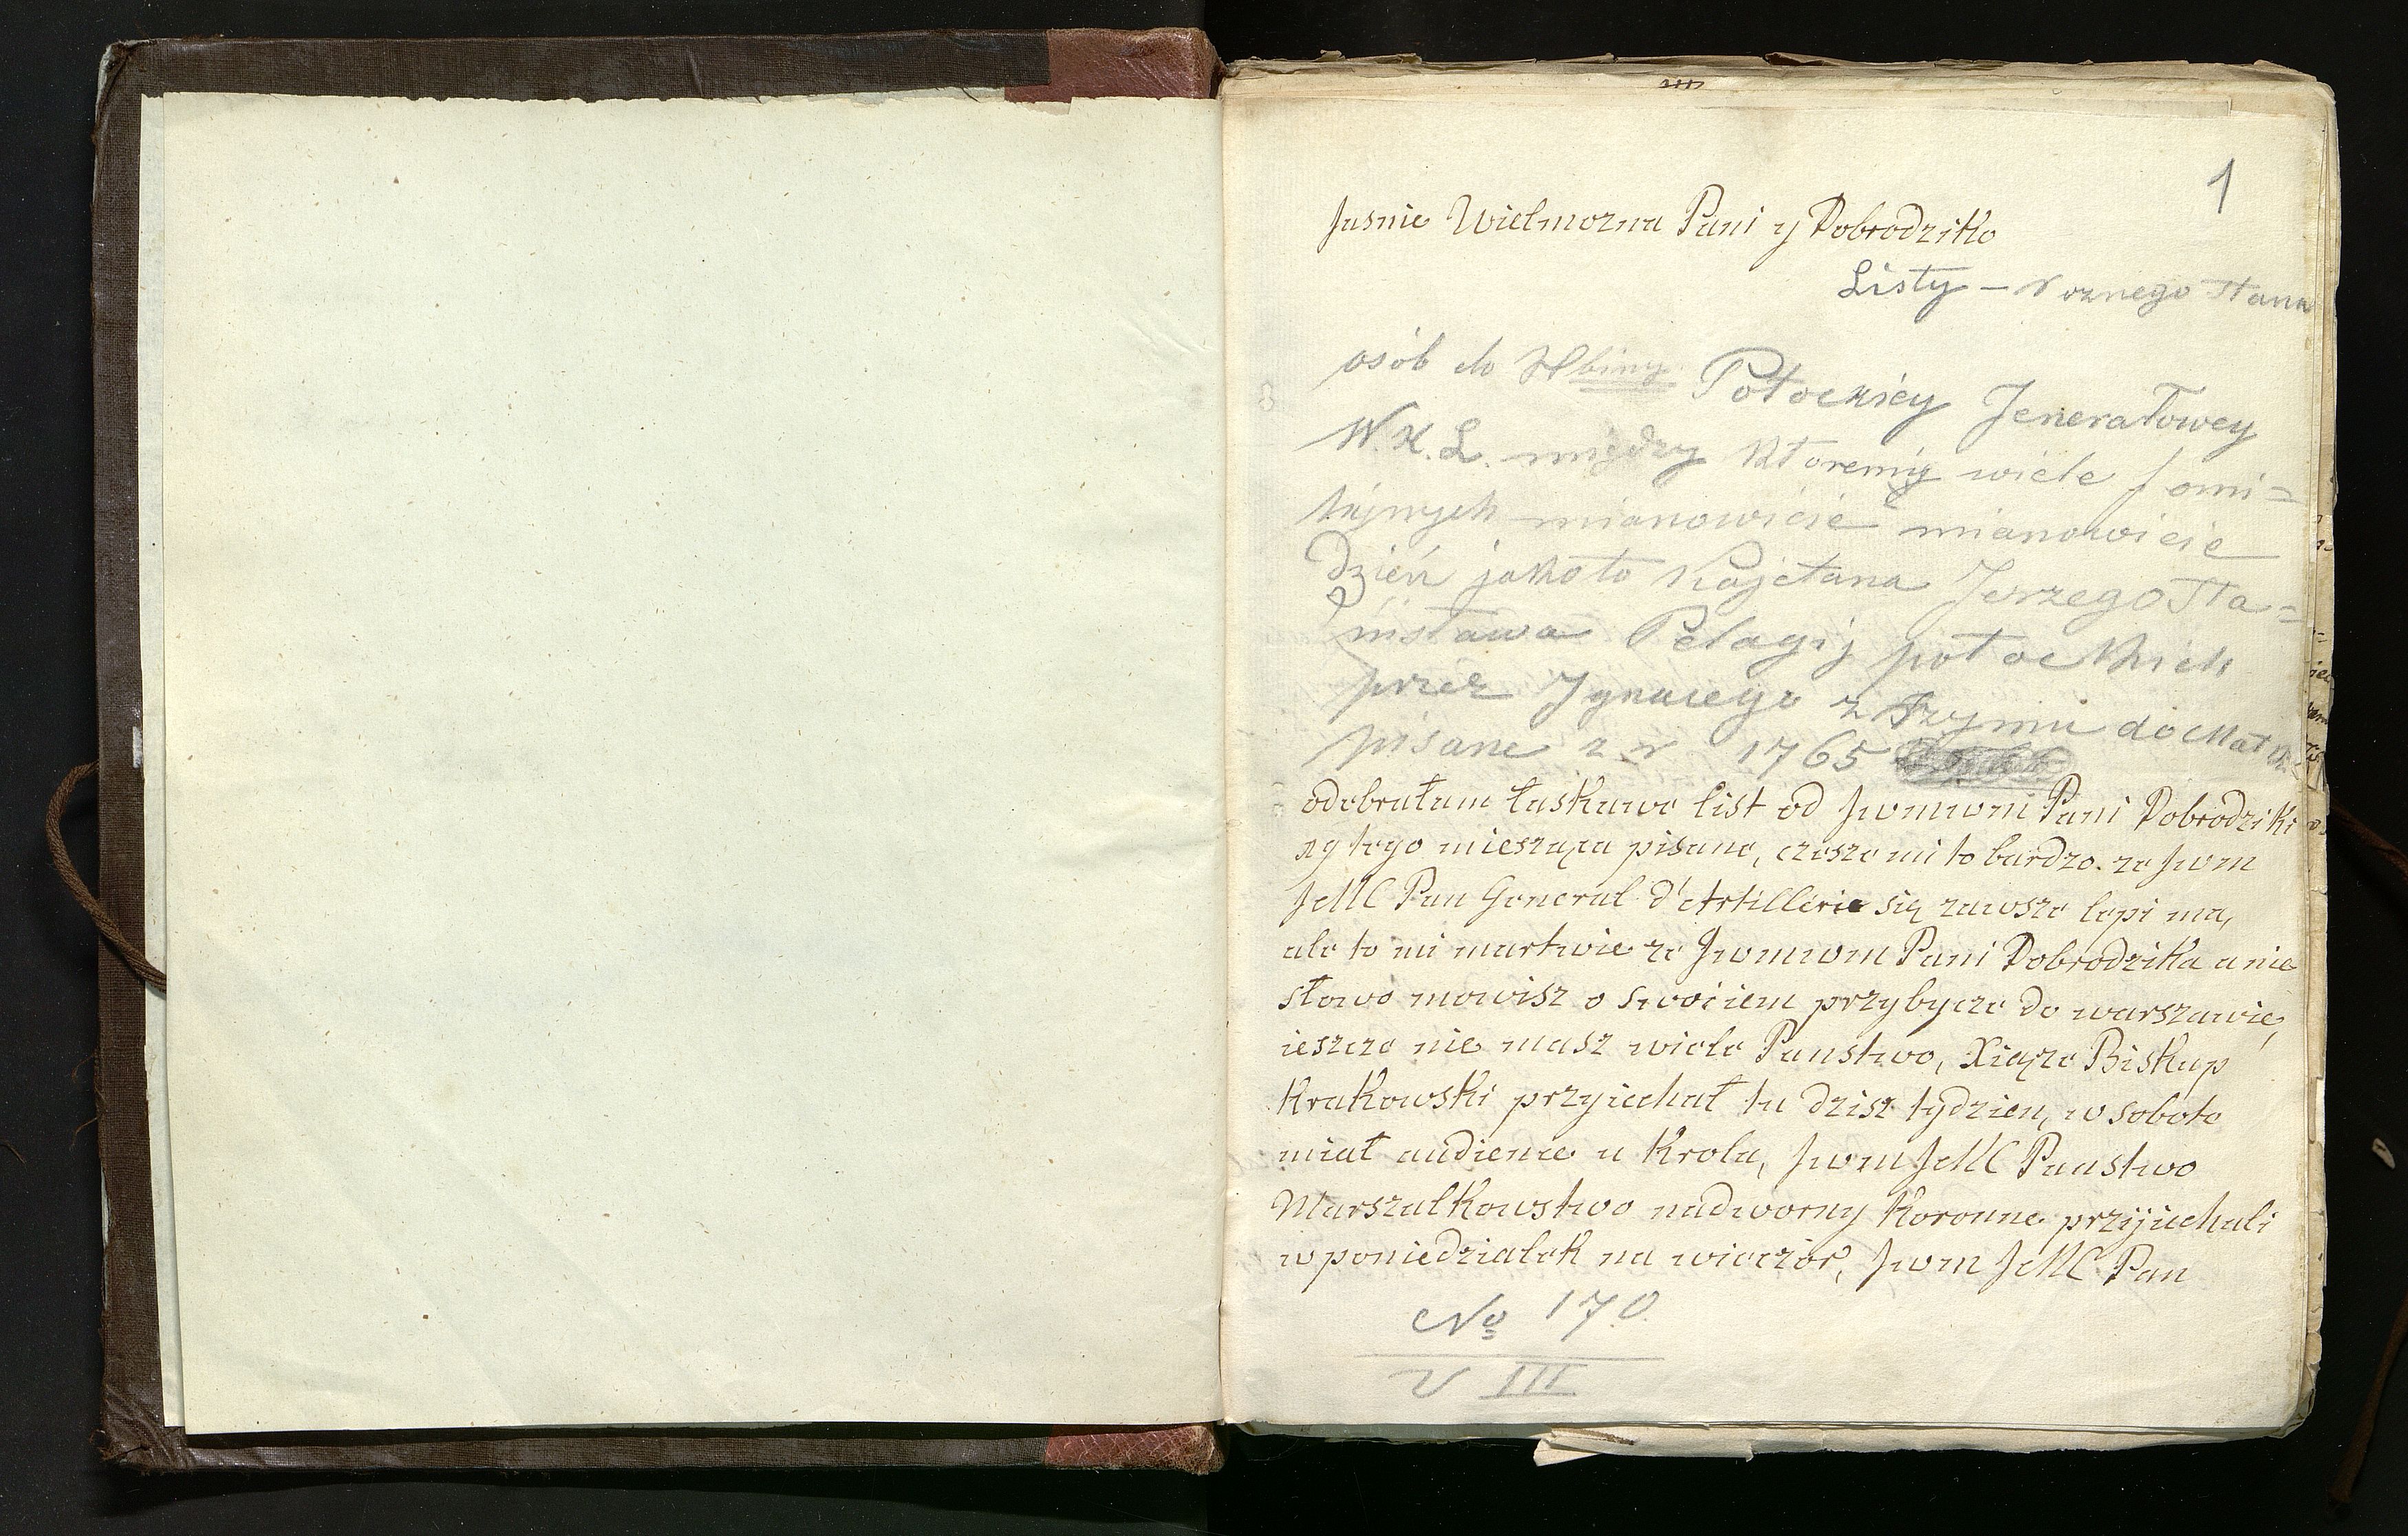 1
Jasnie Wielmozna Pani y Dobrodziko
Listy – roznego stanu
osób do Hbiny Potockiey Jenerałowey
W. X. L. między któremy wiele fami=
lijnych mianowicie mianowicie
Dzień jakoto Kajetana Jerzego Sta=
nisława Pelagij potockich
przez Ignacego z Rzymu do Matki
pisane z r 1765
odebrałam łaskawe list od Jwmwm Pani Dobrodziki
29 tego miesząca pisane, czeszo mi to bardzo. ze Jwm
JeMC Pan General d'Artillerie się zawsze lepi ma,
ale to mi martwie ze Jwmwm Pani Dobrodzika a nie
słowo mowisz o swoiem przybycze do warszawie,
ieszcze nie masz wiele Panstwo, Xiąze Biskup
Krakowski przyiechał tu dzisz tydzien, w soboto
miał audience u Krola, Jwm JeMC Panstwo
Marszalkowstwo nadworny Koronne przyjechali
w poniedzialek na wieczior, Jwm JeMC Pan
No 170
V III